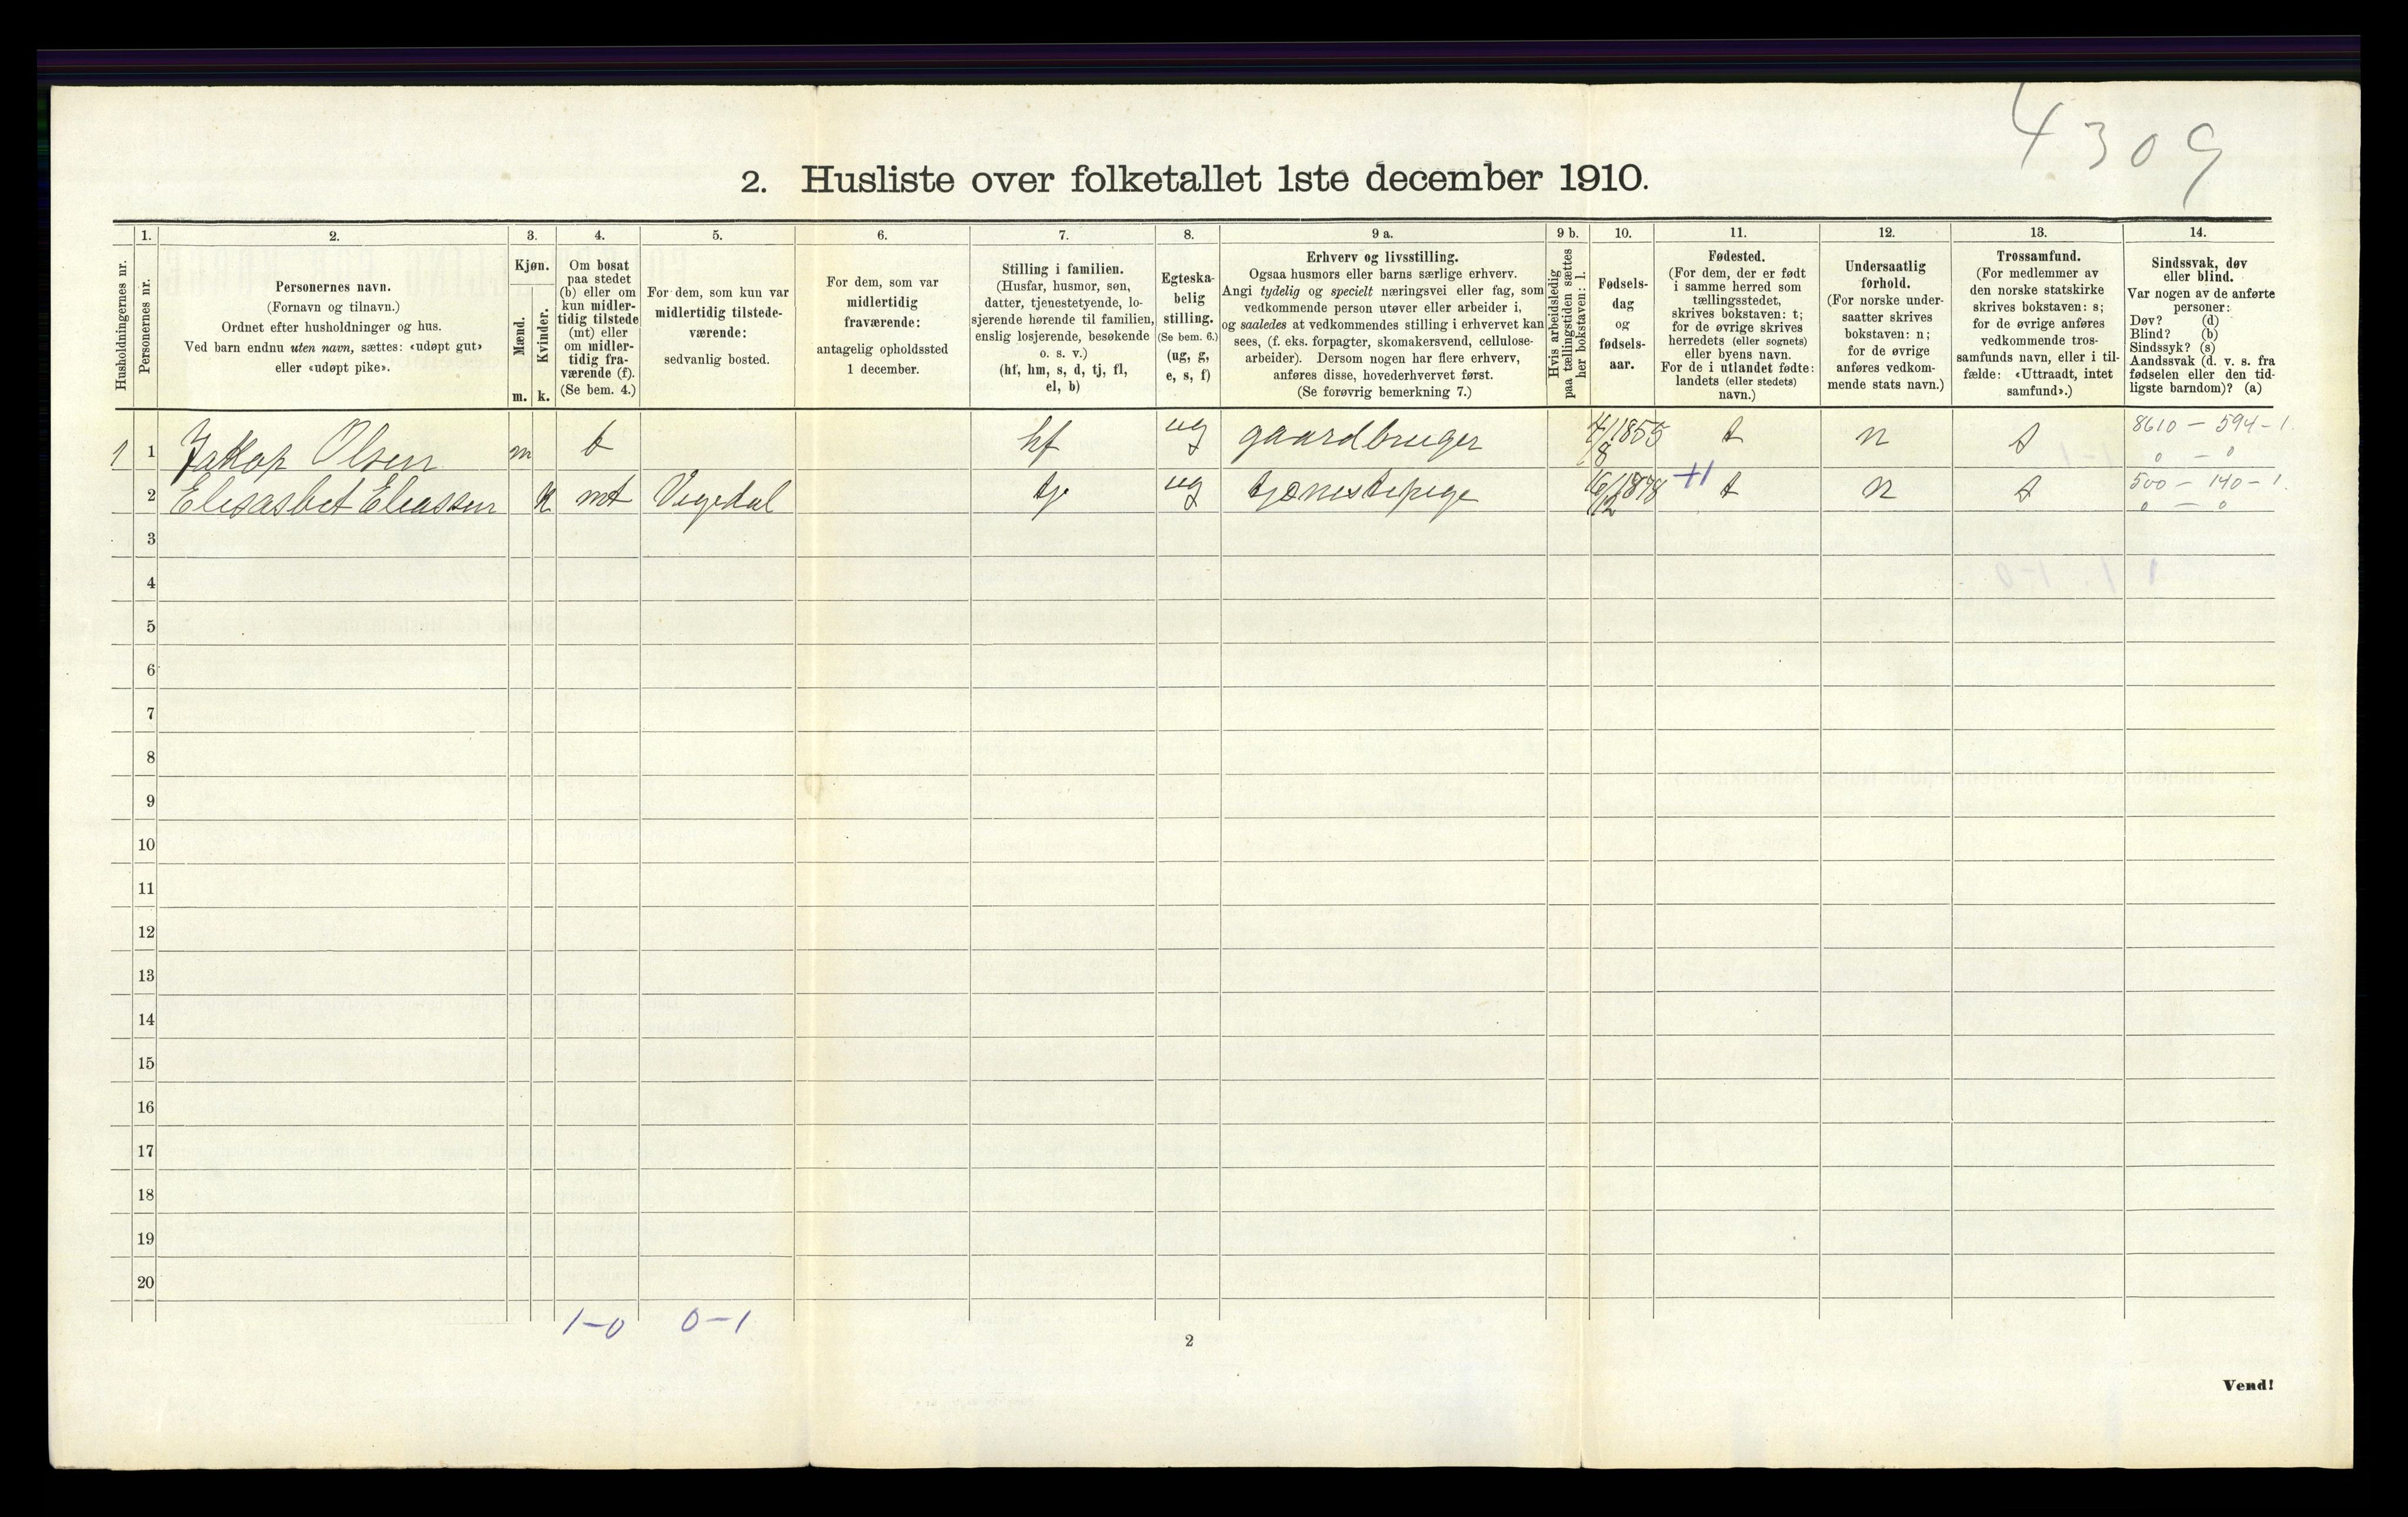 4309
2. Husliste over folketallet 1ste december 1910.
Husholdningernes nr.
1.
Personernes nr.
2.
Personernes navn.
(Fornavn og tilnavn.)
Ordnet efter husholdninger og hus.
Ved barn endnu uten navn, sættes: «udøpt gut»
eller «udøpt pike».
3.
Kjøn.
Mænd.
Kvinder.
m. k.
4.
Om bosat
paa stedet
(b) eller om
kun midler-
tidig tilstede
(mt) eller
om midler-
tidig fra-
værende (f).
(Se bem. 4.)
5.
For dem, som kun var
midlertidig tilstede-
værende:
sedvanlig bosted.
6.
For dem, som var
midlertidig
fraværende:
antagelig opholdssted
1 december.
7.
Stilling i familien.
(Husfar, husmor, søn,
datter, tjenestetyende, lo-
sjerende hørende til familien,
enslig losjerende, besøkende
o. s. v.)
(hf, hm, s, d, tj, fl,
el, b)
8.
Egteska-
belig
stilling.
(Se bem. 6.)
(ug, g,
e, s, f)
9 a.
Erhverv og livsstilling.
Ogsaa husmors eller barns særlige erhverv.
Angi tydelig og specielt næringsvei eller fag, som
vedkommende person utøver eller arbeider i,
og saaledes at vedkommendes stilling i erhvervet kan
sees, (f. eks. forpagter, skomakersvend, cellulose-
arbeider). Dersom nogen har flere erhverv,
anføres disse, hovederhvervet først.
(Se forøvrig bemerkning 7.)
9 b.
Hvis arbeidsledig
paa tællingstiden sættes
her bokstaven: l.
10.
Fødsels-
dag
og
fødsels-
aar.
11.
Fødested.
(For dem, der er født
i samme herred som
tællingsstedet,
skrives bokstaven: t;
for de øvrige skrives
herredets (eller sognets)
eller byens navn.
For de i utlandet fødte:
landets (eller stedets)
navn.)
12.
Undersaatlig
forhold.
(For norske under-
saatter skrives
bokstaven: n;
for de øvrige
anføres vedkom-
mende stats navn.)
13.
Trossamfund.
(For medlemmer av
den norske statskirke
skrives bokstaven: s;
for de øvrige anføres
vedkommende tros-
samfunds navn, eller i til-
fælde: «Uttraadt, intet
samfund».)
14.
Sindssvak, døv
eller blind.
Var nogen av de anførte
personer:
Døv? (d)
Blind? (b)
Sindssyk? (s)
Aandssvak (d. v. s. fra
fødselen eller den tid-
ligste barndom)? (a)
1 1 Jakop Olsen m b hf ug gaardbruger 4/8 1855 t n s 8610 — 594 — 1.
0 — 0
2 Elisasbet Eleassen k mt Vegedal tj ug tjønestepige 16/12 1878 +1 t n s 500 — 140 — 1.
0 — 0
3
4
5
6
7
8
9
10
11
12
13
14
15
16
17
18
19
20
1-0 0-1
2
Vend!